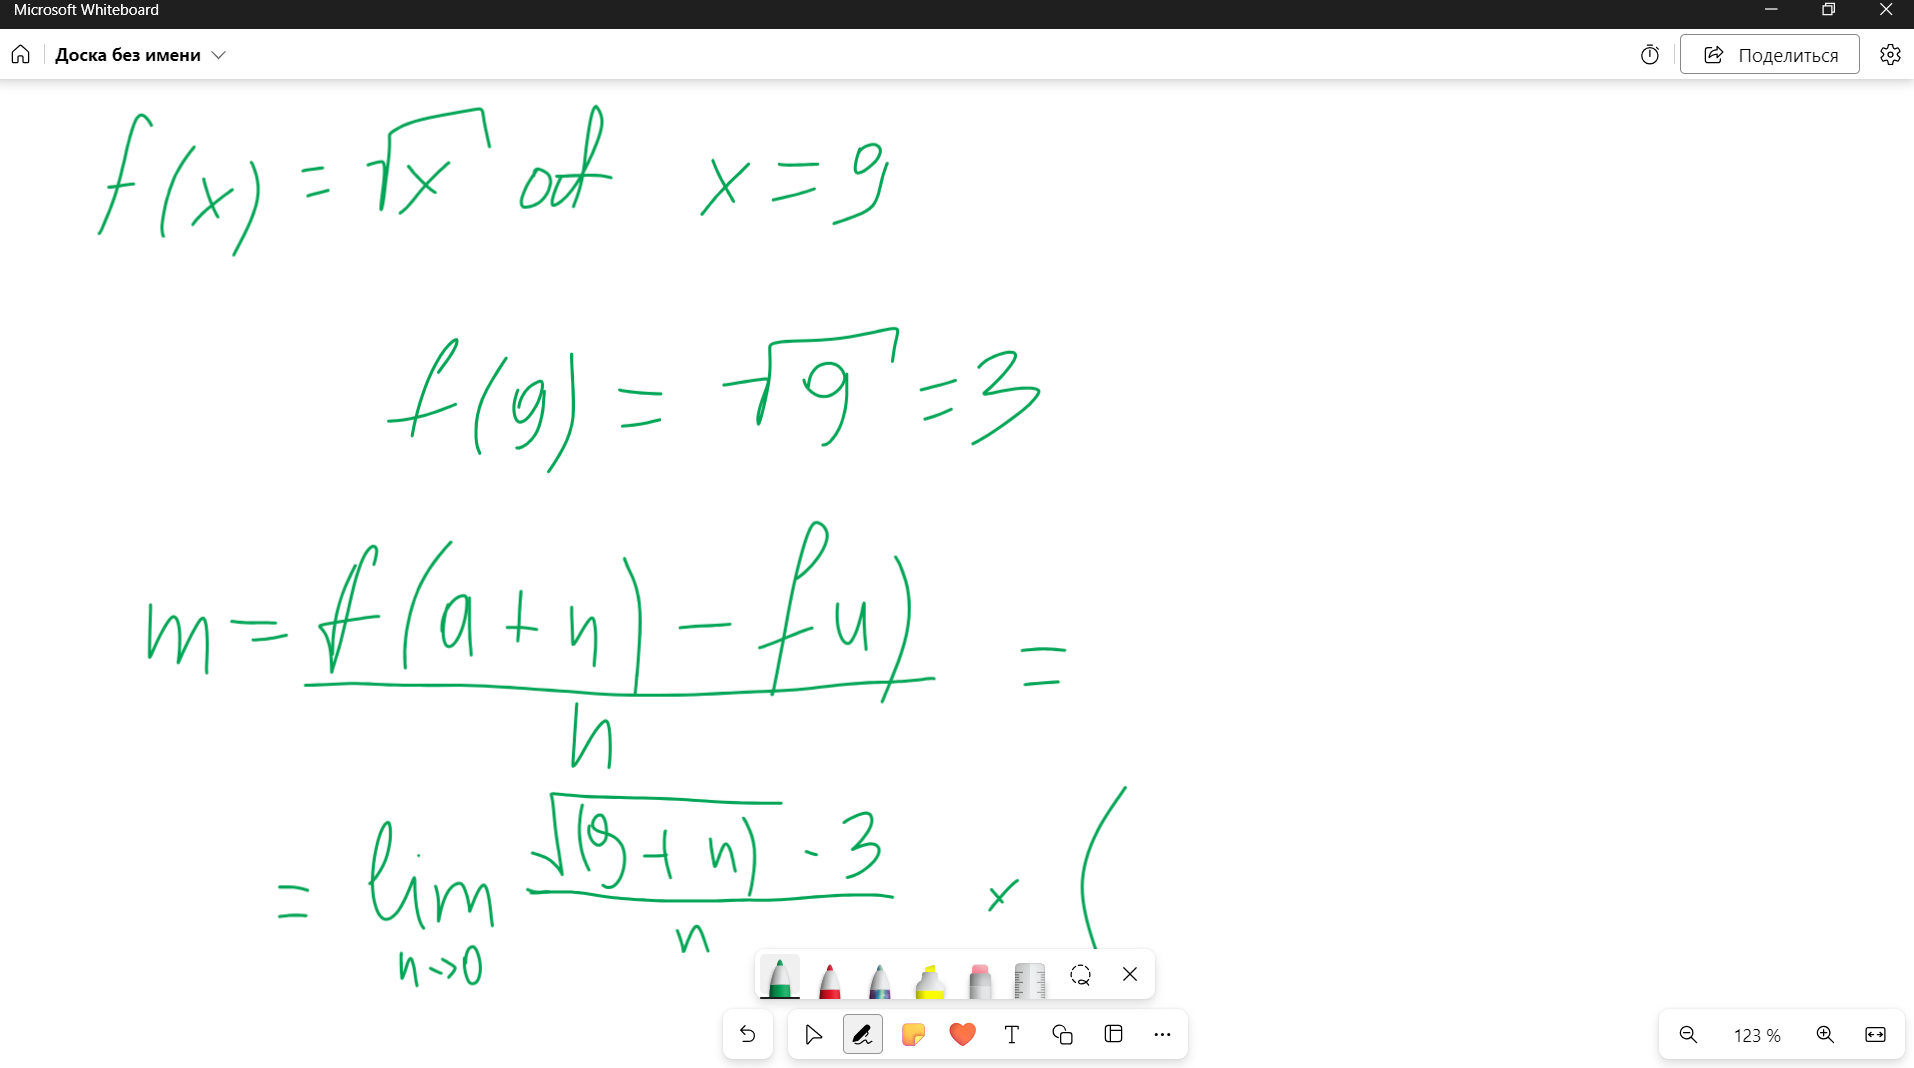 Microsoft Whiteboard
Доска без имени
Поделиться
f(x) = √x at x = 9
f(9) = √9 = 3
m = f(a + h) - f(a) =
h
= lim √(9 + h) - 3 × (
h→0 h
123 %